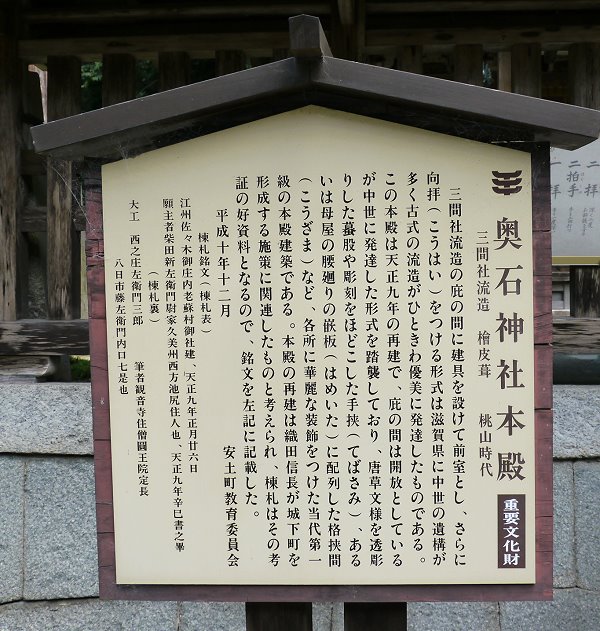 奥石神社本殿 重要文化財
三間社流造 檜皮葺 桃山時代
三間社流造の庇の間に建具を設けて前室とし、さらに
向拝（こうはい）をつける形式は滋賀県に中世の遺構が
多く古式の流造がひときわ優美に発達したものである。
この本殿は天正九年の再建で、庇の間は開放としている
が中世に発達した形式を踏襲しており、唐草文様を透彫
りした蟇股や彫刻をほどこした手挟（てばさみ）、ある
いは母屋の腰廻りの嵌板（はめいた）に配列した格狭間
（こうざま）など、各所に華麗な装飾をつけた当代第一
級の本殿建築である。本殿の再建は織田信長が城下町を
形成する施策に関連したものと考えられ、棟札はその考
証の好資料となるので、銘文を左記に記載した。
平成十年十二月 安土町教育委員会
棟札銘文（棟札表）
江州佐々木御庄内老蘇村御社建、天正九年正月廿六日
願主者柴田新左衛門尉家久美州西方池尻住人也、天正九年辛巳書之畢
（棟札裏）
大工 西之庄左衛門三郎 筆者観音寺住僧圓王院定長
八日市藤左衛門内口七足也
二拍手
拝